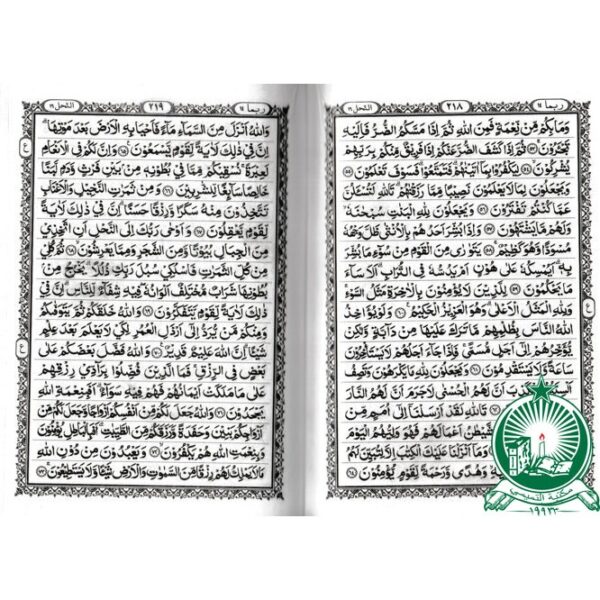 ربما ١٤
٢١٨
النحل ١٦
وَمَا بِكُمْ مِّنْ نِّعْمَةٍ فَمِنَ اللهِ ثُمَّ اِذَا مَسَّكُمُ الضُّرُّ فَاِلَيْهِ
تَجْـَٔرُوْنَ ﴿٥٣﴾ ثُمَّ اِذَا كَشَفَ الضُّرَّ عَنْكُمْ اِذَا فَرِيْقٌ مِّنْكُمْ بِرَبِّهِمْ
يُشْرِكُوْنَ ﴿٥٤﴾ لِيَكْفُرُوْا بِمَآ اٰتَيْنٰهُمْ فَتَمَتَّعُوْا فَسَوْفَ تَعْلَمُوْنَ ﴿٥٥﴾
وَيَجْعَلُوْنَ لِمَا لَا يَعْلَمُوْنَ نَصِيْبًا مِّمَّا رَزَقْنٰهُمْ تَاللهِ لَتُسْـَٔلُنَّ
عَمَّا كُنْتُمْ تَفْتَرُوْنَ ﴿٥٦﴾ وَيَجْعَلُوْنَ لِلّٰهِ الْبَنٰتِ سُبْحٰنَهٗ
وَلَهُمْ مَّا يَشْتَهُوْنَ ﴿٥٧﴾ وَاِذَا بُشِّرَ اَحَدُهُمْ بِالْاُنْثٰى ظَلَّ وَجْهُهٗ
مُسْوَدًّا وَّهُوَ كَظِيْمٌ ﴿٥٨﴾ يَتَوَارٰى مِنَ الْقَوْمِ مِنْ سُوْٓءِ مَا بُشِّرَ
بِهٖ اَيُمْسِكُهٗ عَلٰى هُوْنٍ اَمْ يَدُسُّهٗ فِى التُّرَابِ اَلَا سَآءَ
مَا يَحْكُمُوْنَ ﴿٥٩﴾ لِلَّذِيْنَ لَا يُؤْمِنُوْنَ بِالْاٰخِرَةِ مَثَلُ السَّوْءِ
وَلِلّٰهِ الْمَثَلُ الْاَعْلٰى وَهُوَ الْعَزِيْزُ الْحَكِيْمُ ﴿٦٠﴾ وَلَوْ يُؤَاخِذُ
اللهُ النَّاسَ بِظُلْمِهِمْ مَّا تَرَكَ عَلَيْهَا مِنْ دَآبَّةٍ وَّلٰكِنْ
يُّؤَخِّرُهُمْ اِلٰٓى اَجَلٍ مُّسَمًّى فَاِذَا جَآءَ اَجَلُهُمْ لَا يَسْتَاْخِرُوْنَ
سَاعَةً وَّلَا يَسْتَقْدِمُوْنَ ﴿٦١﴾ وَيَجْعَلُوْنَ لِلّٰهِ مَا يَكْرَهُوْنَ وَتَصِفُ
الْكَذِبَ اَنَّ لَهُمُ الْحُسْنٰى لَا جَرَمَ اَنَّ لَهُمُ النَّارَ
تَاللهِ لَقَدْ اَرْسَلْنَآ اِلٰٓى اُمَمٍ مِّنْ
الشَّيْطٰنُ اَعْمَالَهُمْ فَهُوَ وَلِيُّهُمُ الْيَوْمَ
وَمَآ اَنْزَلْنَا عَلَيْكَ الْكِتٰبَ اِلَّا لِتُبَيِّنَ لَهُمُ
وَهُدًى وَّرَحْمَةً لِّقَوْمٍ يُّؤْمِنُوْنَ ﴿٦٤﴾
ربما ١٤
٢١٩
النحل ١٦
وَاللهُ اَنْزَلَ مِنَ السَّمَآءِ مَآءً فَاَحْيَا بِهِ الْاَرْضَ بَعْدَ مَوْتِهَا
اِنَّ فِيْ ذٰلِكَ لَاٰيَةً لِّقَوْمٍ يَّسْمَعُوْنَ ﴿٦٥﴾ وَاِنَّ لَكُمْ فِى الْاَنْعَامِ
لَعِبْرَةً نُسْقِيْكُمْ مِّمَّا فِيْ بُطُوْنِهٖ مِنْۢ بَيْنِ فَرْثٍ وَّدَمٍ لَّبَنًا
خَالِصًا سَآئِغًا لِّلشّٰرِبِيْنَ ﴿٦٦﴾ وَمِنْ ثَمَرٰتِ النَّخِيْلِ وَالْاَعْنَابِ
تَتَّخِذُوْنَ مِنْهُ سَكَرًا وَّرِزْقًا حَسَنًا اِنَّ فِيْ ذٰلِكَ لَاٰيَةً
لِّقَوْمٍ يَّعْقِلُوْنَ ﴿٦٧﴾ وَاَوْحٰى رَبُّكَ اِلَى النَّحْلِ اَنِ اتَّخِذِيْ
مِنَ الْجِبَالِ بُيُوْتًا وَّمِنَ الشَّجَرِ وَمِمَّا يَعْرِشُوْنَ ﴿٦٨﴾ ثُمَّ كُلِيْ
مِنْ كُلِّ الثَّمَرٰتِ فَاسْلُكِيْ سُبُلَ رَبِّكِ ذُلُلًا يَخْرُجُ مِنْۢ
بُطُوْنِهَا شَرَابٌ مُّخْتَلِفٌ اَلْوَانُهٗ فِيْهِ شِفَآءٌ لِّلنَّاسِ اِنَّ فِيْ
ذٰلِكَ لَاٰيَةً لِّقَوْمٍ يَّتَفَكَّرُوْنَ ﴿٦٩﴾ وَاللهُ خَلَقَكُمْ ثُمَّ يَتَوَفّٰكُمْ
وَمِنْكُمْ مَّنْ يُّرَدُّ اِلٰٓى اَرْذَلِ الْعُمُرِ لِكَيْ لَا يَعْلَمَ بَعْدَ عِلْمٍ
شَيْـًٔا اِنَّ اللهَ عَلِيْمٌ قَدِيْرٌ ﴿٧٠﴾ وَاللهُ فَضَّلَ بَعْضَكُمْ عَلٰى
بَعْضٍ فِى الرِّزْقِ فَمَا الَّذِيْنَ فُضِّلُوْا بِرَآدِّيْ رِزْقِهِمْ
عَلٰى مَا مَلَكَتْ اَيْمَانُهُمْ فَهُمْ فِيْهِ سَوَآءٌ اَفَبِنِعْمَةِ اللهِ
يَجْحَدُوْنَ ﴿٧١﴾ وَاللهُ جَعَلَ لَكُمْ مِّنْ اَنْفُسِكُمْ اَزْوَاجًا وَّجَعَلَ لَكُمْ مِّنْ
اَزْوَاجِكُمْ بَنِيْنَ وَحَفَدَةً وَّرَزَقَكُمْ مِّنَ الطَّيِّبٰتِ اَفَبِالْبَاطِلِ يُؤْمِنُوْنَ
وَبِنِعْمَتِ اللهِ هُمْ يَكْفُرُوْنَ ﴿٧٢﴾ وَيَعْبُدُوْنَ مِنْ دُوْنِ اللهِ
مَا لَا يَمْلِكُ لَهُمْ رِزْقًا مِّنَ السَّمٰوٰتِ وَالْاَرْضِ شَيْـًٔا وَّلَا يَسْتَطِيْعُوْنَ ﴿٧٣﴾